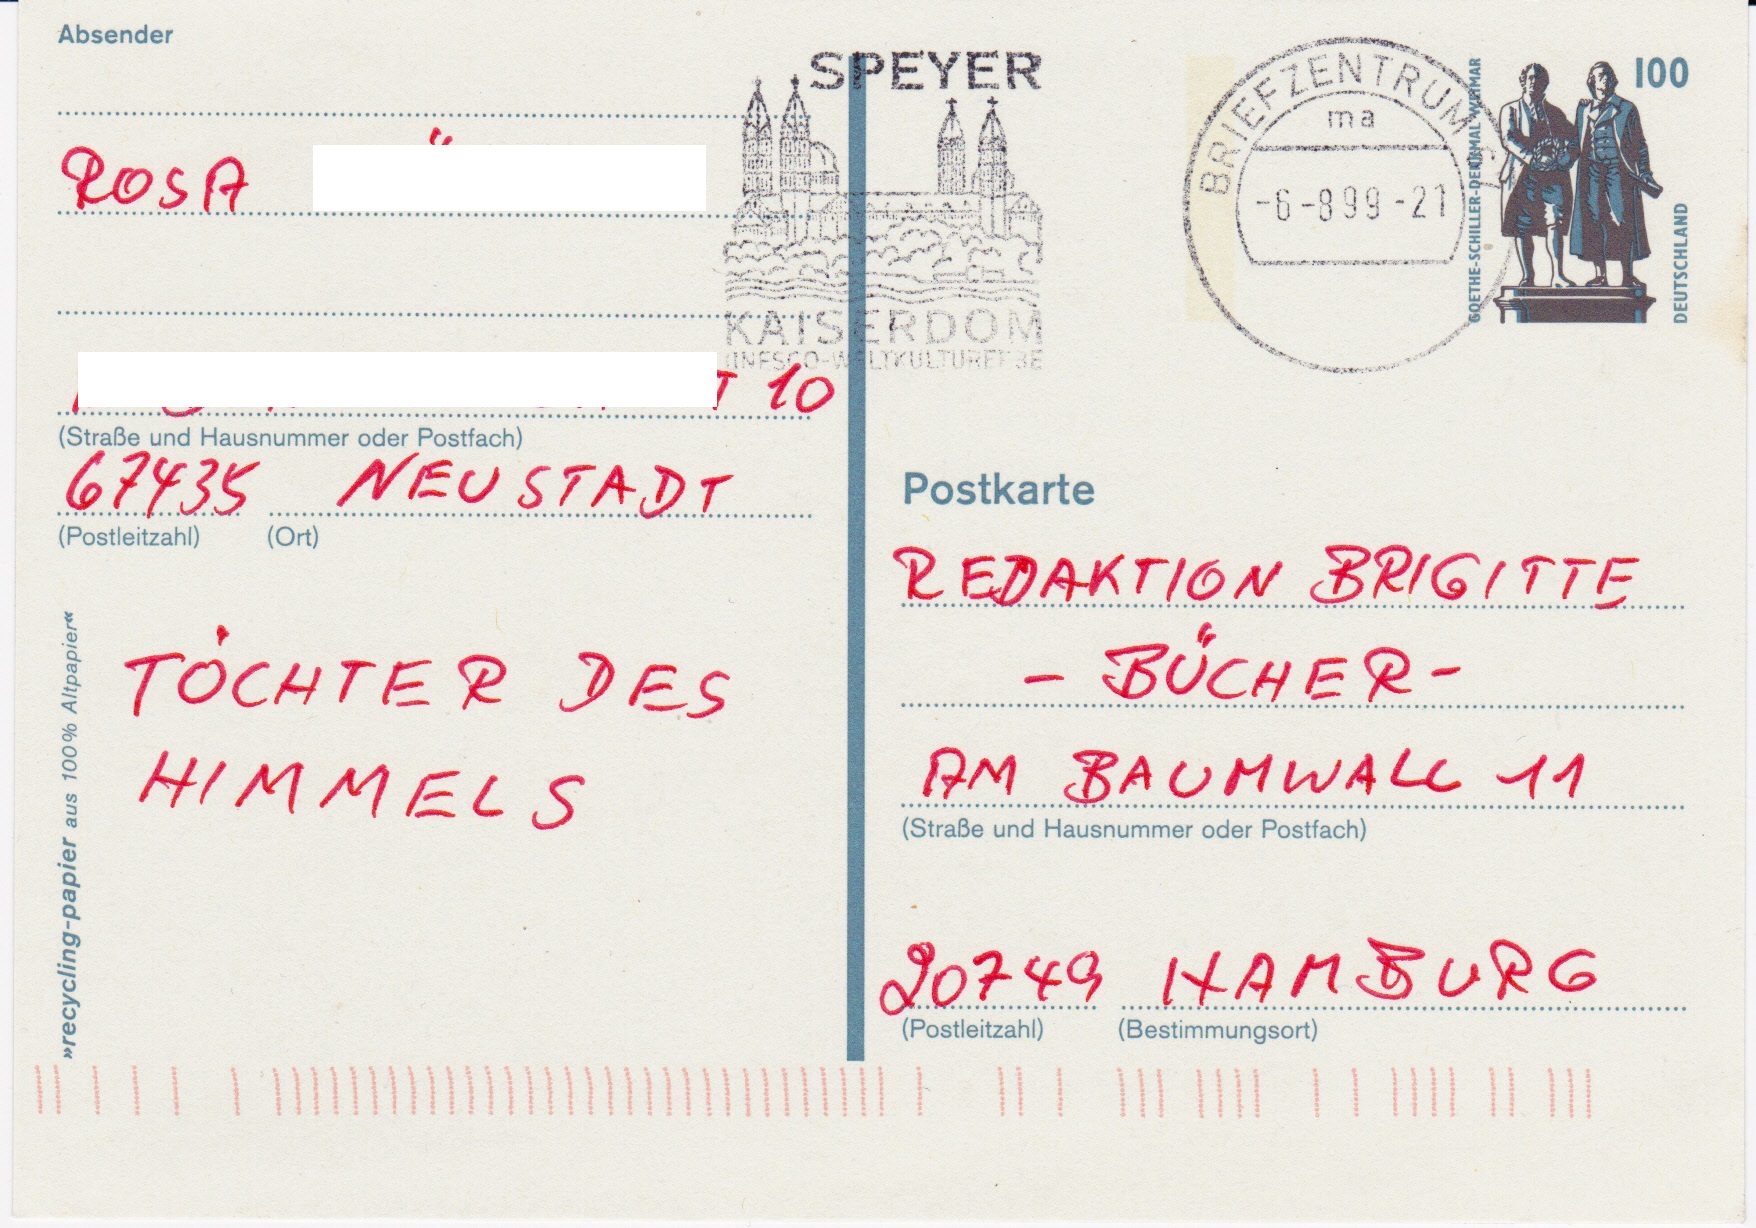 Absender
ROSA
10
(Straße und Hausnummer oder Postfach)
67435 NEUSTADT
(Postleitzahl) (Ort)
TÖCHTER DES
HIMMELS
»recycling-papier aus 100% Altpapier«
SPEYER
KAISERDOM
UNESCO-WELTKULTURERBE
BRIEFZENTRUM 67
ma
-6-899-21
100
GOETHE-SCHILLER-DENKMAL WEIMAR
DEUTSCHLAND
Postkarte
REDAKTION BRIGITTE
- BÜCHER -
AM BAUMWALL 11
(Straße und Hausnummer oder Postfach)
20749 HAMBURG
(Postleitzahl) (Bestimmungsort)